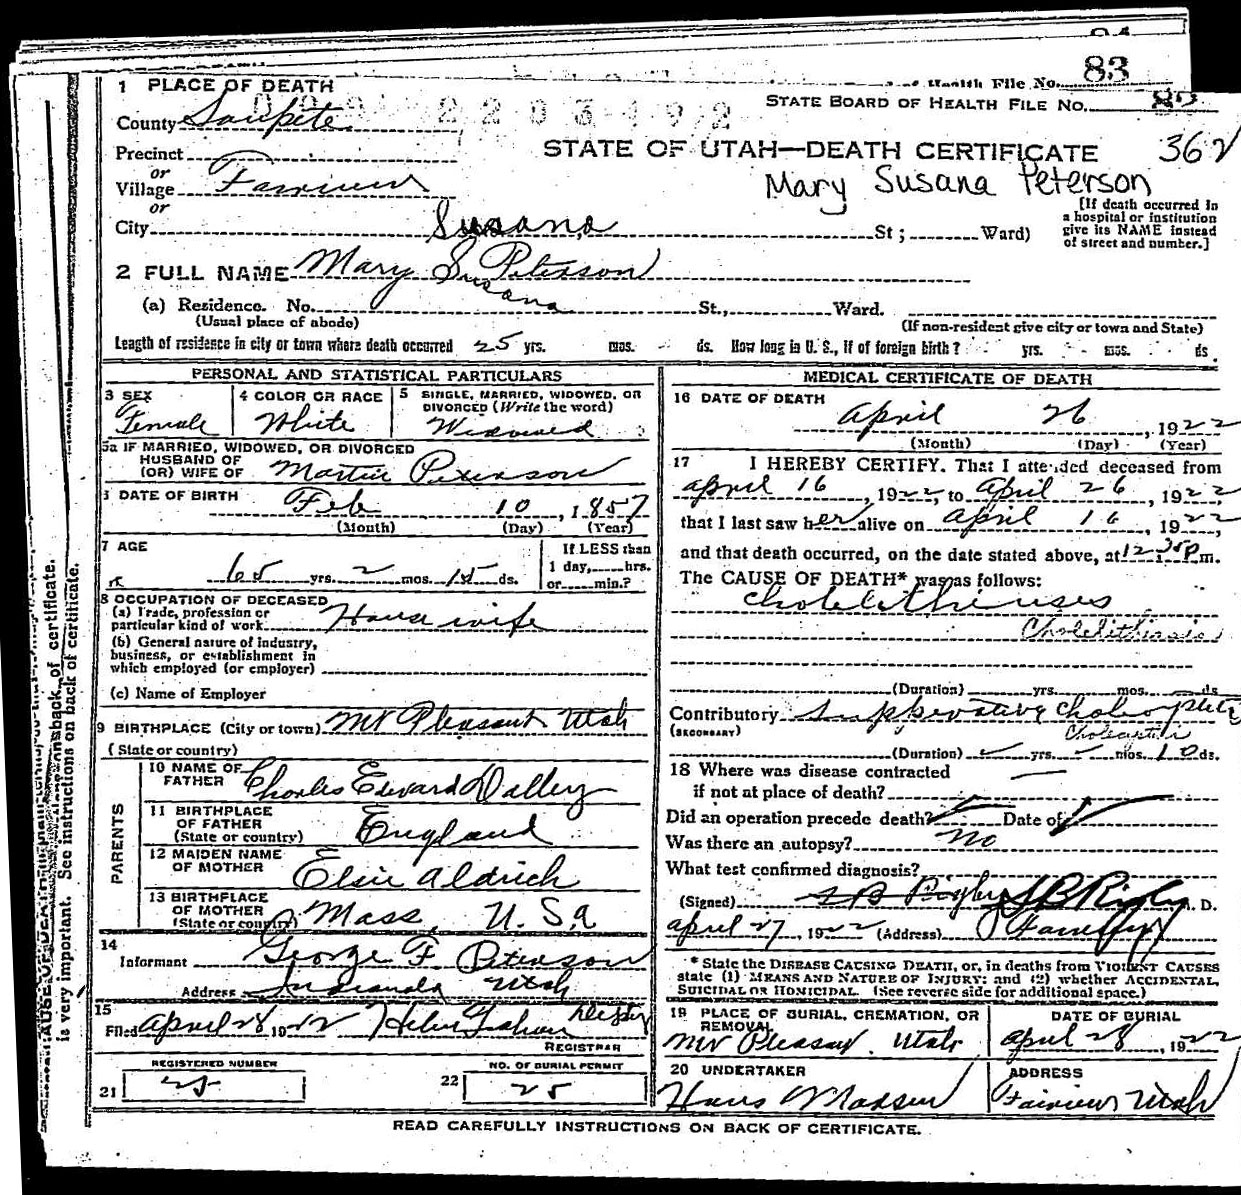 83
Health File No.
1 PLACE OF DEATH
STATE BOARD OF HEALTH FILE No. 82
County Sanpete
STATE OF UTAH—DEATH CERTIFICATE 362
Precinct
or
Village Fairview
Mary Susana Peterson
or
[If death occurred in a hospital or institution give its NAME instead of street and number.]
City St; Ward)
Susana
2 FULL NAME Mary S Peterson
Susana
(a) Residence. No. St., Ward.
(Usual place of abode) (If non-resident give city or town and State)
Length of residence in city or town where death occurred 25 yrs. mos. ds. How long in U. S., if of foreign birth? yrs. mos. ds.
PERSONAL AND STATISTICAL PARTICULARS
3 SEX 4 COLOR OR RACE 5 SINGLE, MARRIED, WIDOWED, OR DIVORCED (Write the word)
Female White Widowed
5a IF MARRIED, WIDOWED, OR DIVORCED
HUSBAND OF
(OR) WIFE OF Martin Peterson
DATE OF BIRTH
Feb 10, 1857
(Month) (Day) (Year)
7 AGE If LESS than
65 yrs. 2 mos. 15 ds. 1 day, hrs.
or min.?
8 OCCUPATION OF DECEASED
(a) Trade, profession or
particular kind of work House wife
(b) General nature of industry,
business, or establishment in
which employed (or employer)
(c) Name of Employer
9 BIRTHPLACE (City or town) Mt Pleasant Utah
(State or country)
PARENTS
10 NAME OF
FATHER Charles Edward Dalley
11 BIRTHPLACE
OF FATHER England
(State or country)
12 MAIDEN NAME
OF MOTHER Elsie Aldrich
13 BIRTHPLACE
OF MOTHER Mass, U.S.A
(State or country)
14
Informant George F Peterson
Address Utah
15
Filed April 28 1922 Helen Graham Deputy
REGISTRAR
REGISTERED NUMBER NO. OF BURIAL PERMIT
21 25 22 25
MEDICAL CERTIFICATE OF DEATH
16 DATE OF DEATH
April 26, 1922
(Month) (Day) (Year)
17 I HEREBY CERTIFY. That I attended deceased from
April 16, 1922, to April 26, 1922
that I last saw her alive on April 16, 1922,
and that death occurred, on the date stated above, at 12:30 P m.
The CAUSE OF DEATH* was as follows:
Cholelithiuses
Cholelithiasis
(Duration) yrs. mos. ds.
Contributory Suppurative
(SECONDARY)
(Duration) yrs. mos. 10 ds.
18 Where was disease contracted
if not at place of death?
Did an operation precede death? Date of
Was there an autopsy? No
What test confirmed diagnosis?
(Signed) S B Rigby S B Rigby M. D.
April 27, 1922 (Address) Fairview
* State the DISEASE CAUSING DEATH, or, in deaths from VIOLENT CAUSES
state (1) MEANS AND NATURE OF INJURY; and (2) whether ACCIDENTAL,
SUICIDAL OR HOMICIDAL. (See reverse side for additional space.)
19 PLACE OF BURIAL, CREMATION, OR REMOVAL DATE OF BURIAL
Mt Pleasant. Utah April 28, 1922
20 UNDERTAKER ADDRESS
Hans Madsen Fairview Utah
READ CAREFULLY INSTRUCTIONS ON BACK OF CERTIFICATE.
is very important. See instructions on back of certificate.